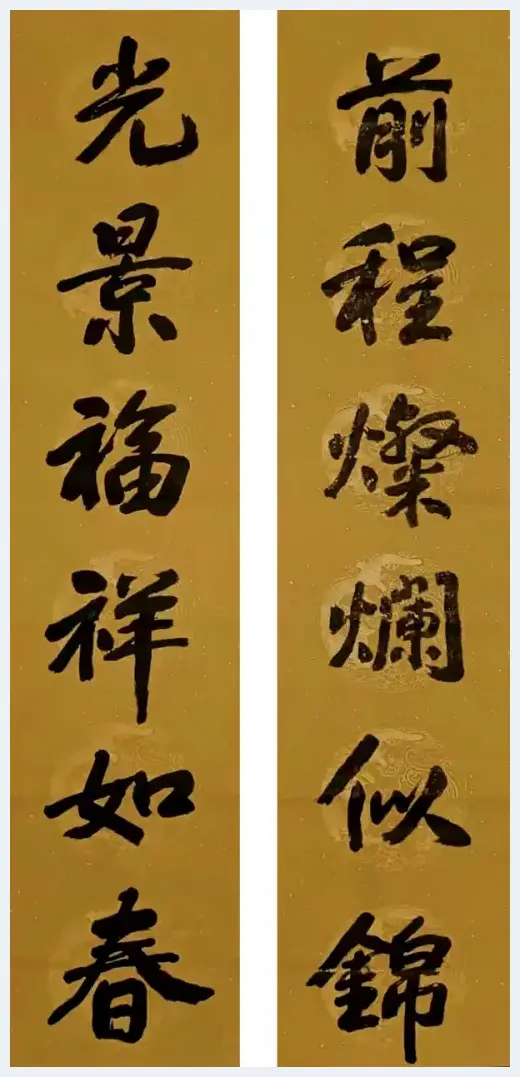 前程燦爛似錦
光景福祥如春